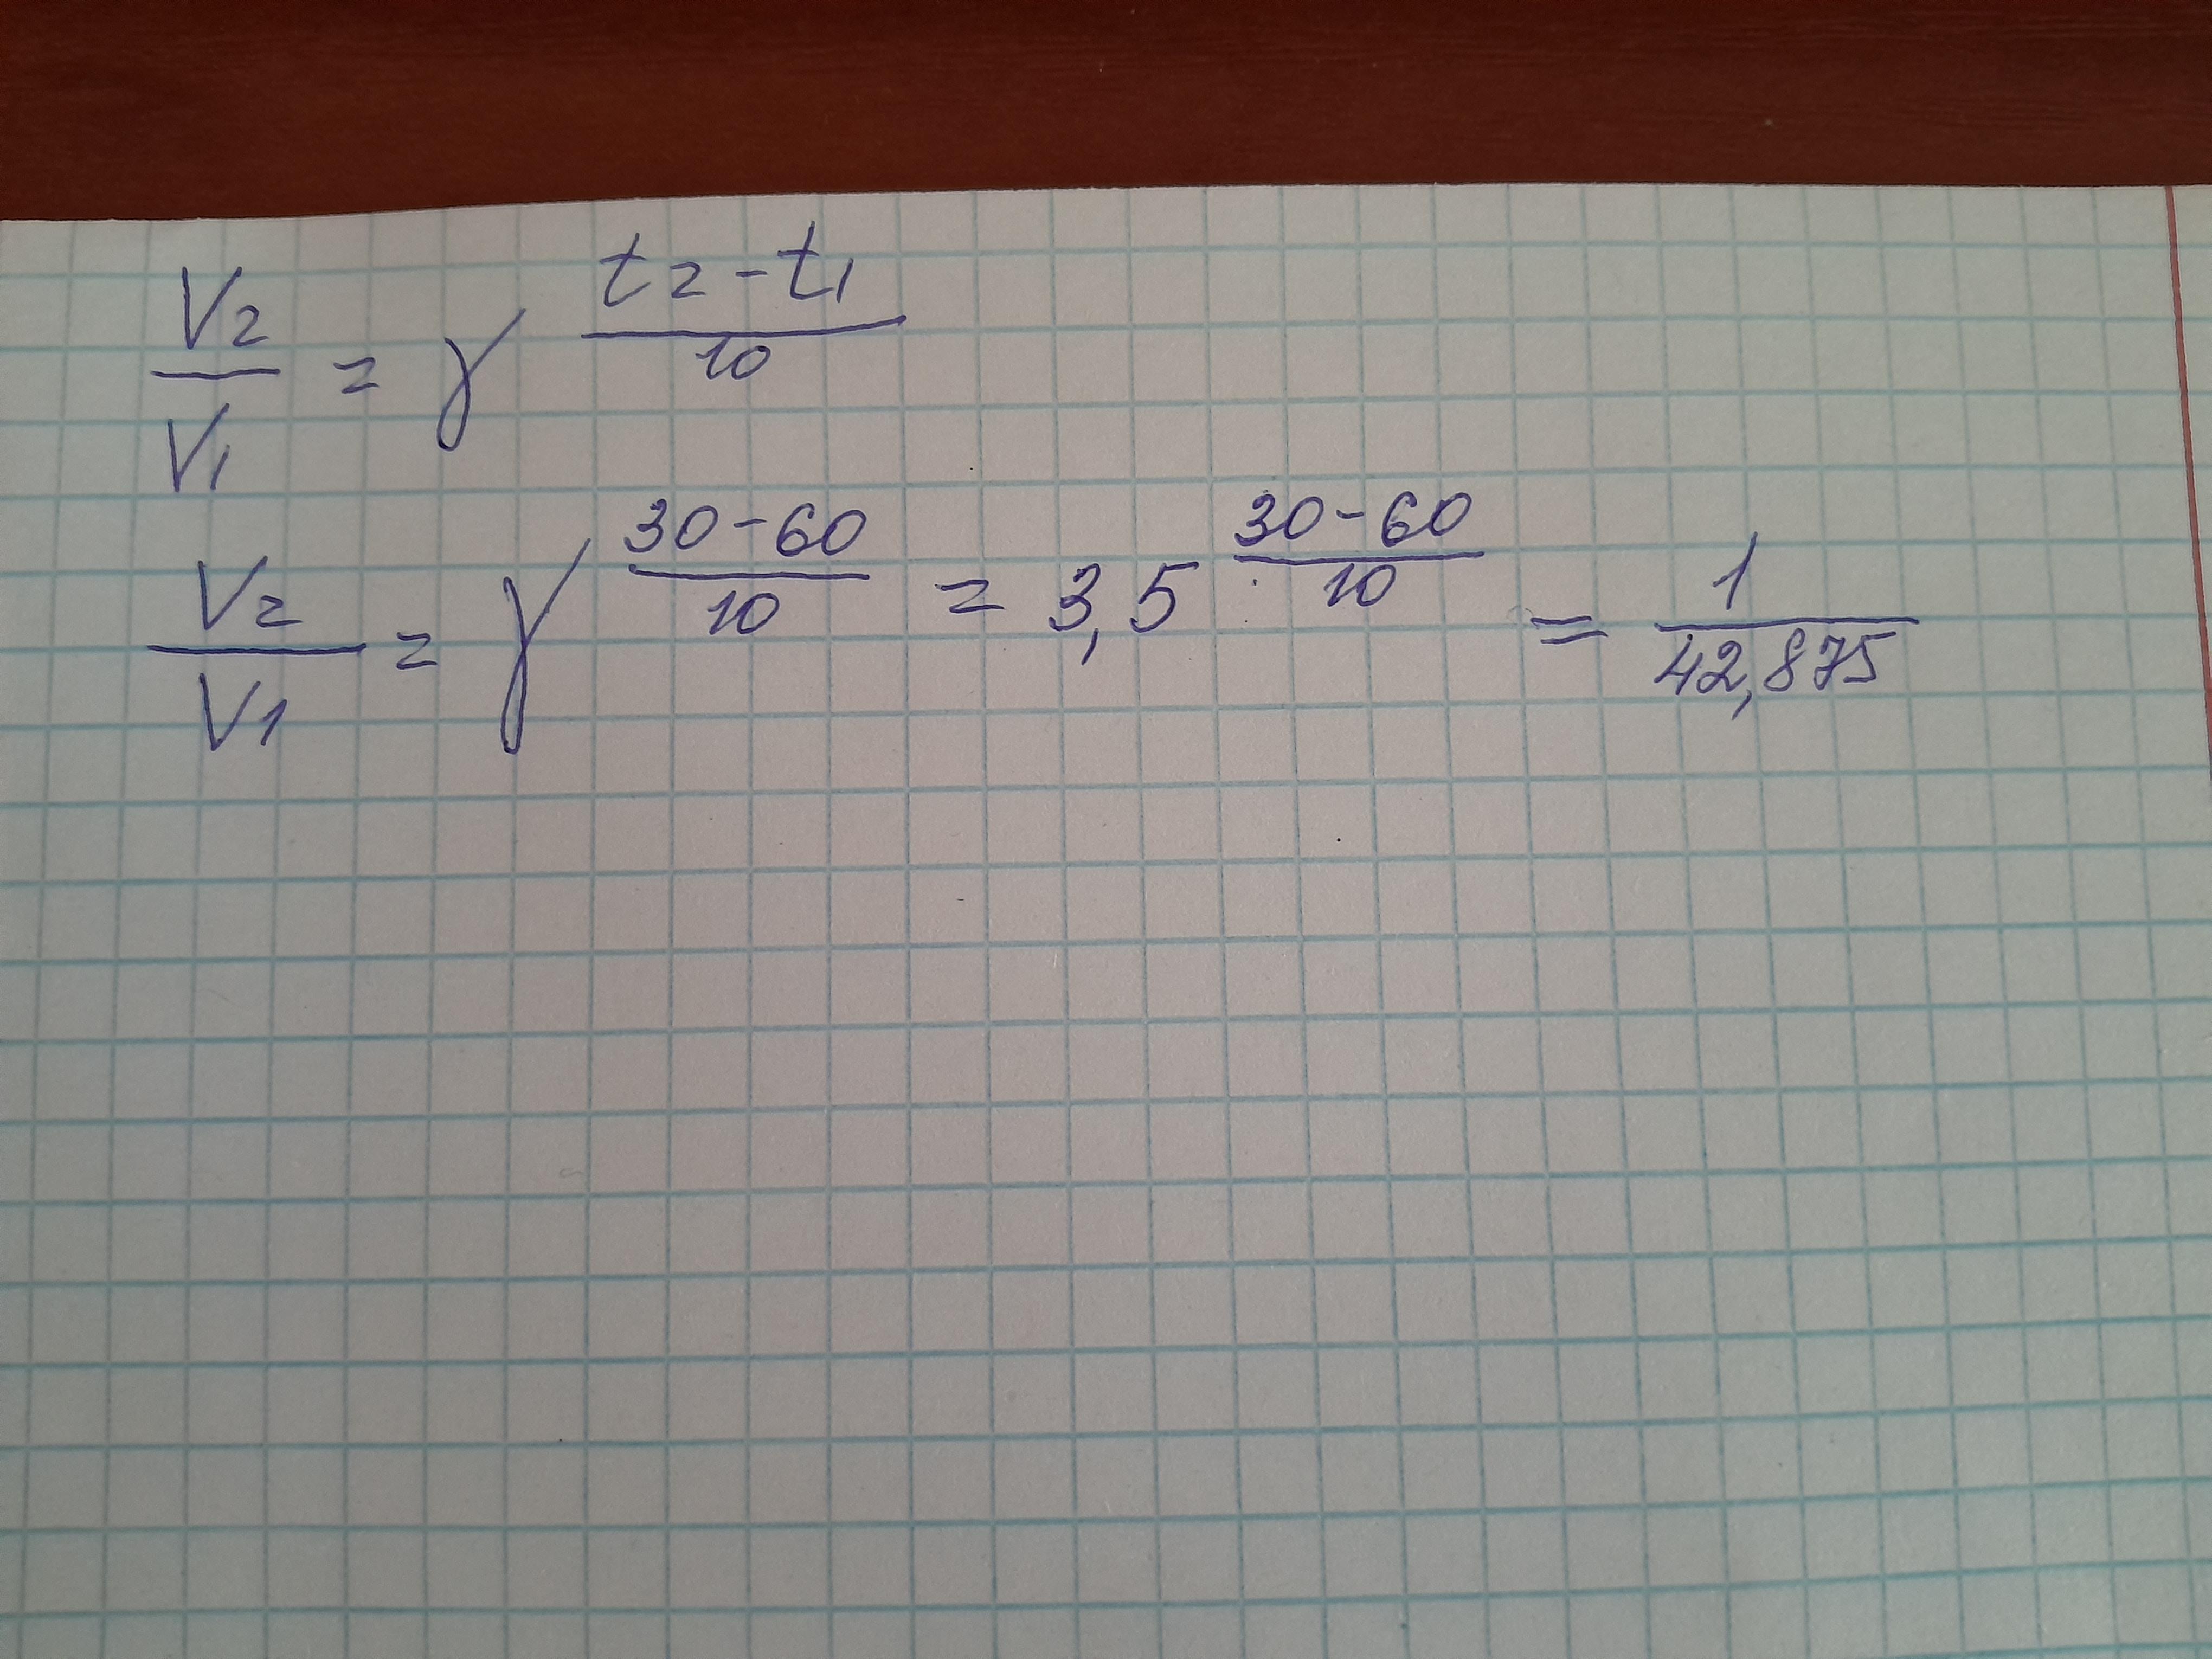 V2/V1 = γ^((t2-t1)/10)
V2/V1 = γ^((30-60)/10) = 3,5^((30-60)/10) = 1/42,875